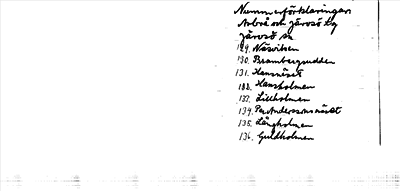 Nummerförklaringar
Arbrå och Järvsö Lg
Järvsö sn
129. Näsviken
130. Brambergsudden
131. Hansnäset
132. Hansholmen
133. Lillholmen
134. Per Anderssonsnäset
135. Långholmen
136. Guldholmen